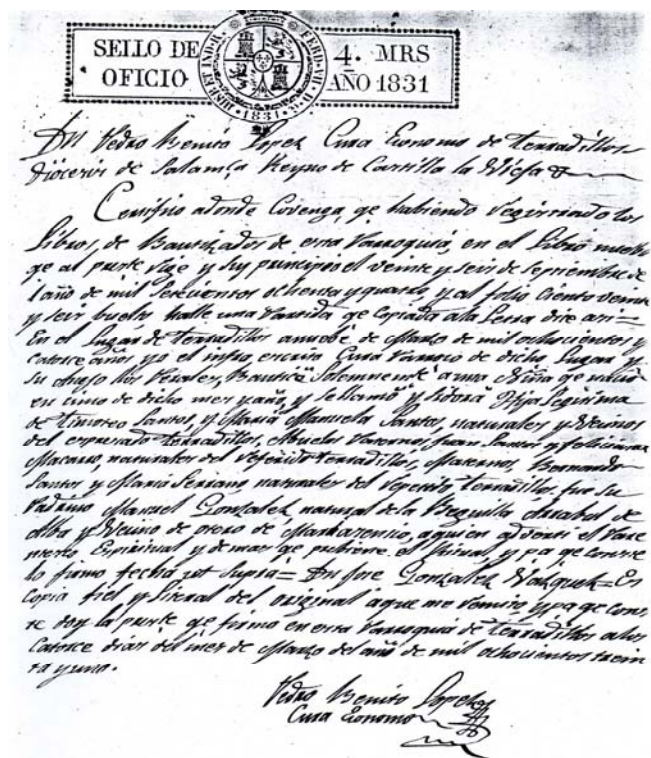 SELLO DE 4. MRS
OFICIO AÑO 1831
HISP. ET IND. R. FERD. VII D. G. 1831
Dn Pedro Benito Lopez Cura Economo de Terradillos
Diocesis de Salamca Reyno de Castilla la Vieja &
Certifico adonde Covenga, qe habiendo registrado los
Libros, de Bautizados de esta Parroquia, en el Libro nuebo
qe al preste rige y su principio el veinte y seis de septiembre de
l año de mil setecientos ochenta y quatro, y al folio ciento veinte
y seis buelto halle una Partida qe Copiada ala Letra dice asi=
En el Lugar de Terradillos a nuebe de Marzo de mil ochocientos y
catorce años yo el infro escrito Cura Parroco de dicho Lugar y
su Anejo los Perales, Bauticé Solemnente a una Niña qe nació
en cinco de dicho mes y año, y se llamó Ysidora Hija Legitima
de Timoteo Santos, y Maria Manuela Santos, naturales y Vecinos
del espresado Terradillos, Abuelos Paternos, Juan Santos y Feliciana
Macarro, naturales del referido Terradillos, Maternos, Bernardo
Santos y Maria Serrano naturales del repetido Terradillos. fue su
Padrino Manuel Gonzalez natural de la Veguilla Arrabal de
Alba y Vecino de otero de Mariasensio, a quien adverti el Pare
ntesco Espiritual y demas qe prebiene el Ritual y pa qe conste
lo firmo fecha ut Supra= Dn Jose Gonzalez Vazquez= Es
Copia fiel y literal del original aque me remito y pa qe cons
te doy la preste qe firmo en esta Parroquia de Terradillos a los
Catorce dias del mes de Marzo del año de mil ochocientos trein
ta y uno.
Pedro Benito Lopez
Cura Economo